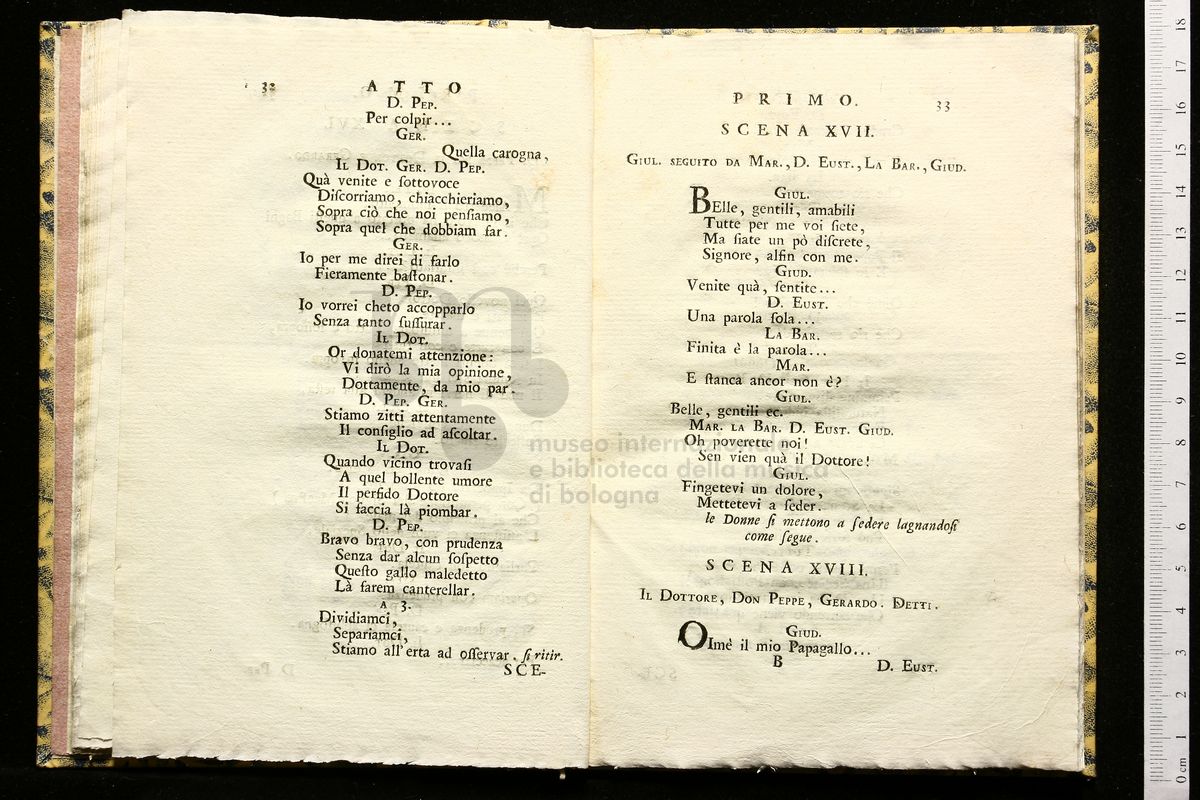 32 ATTO
D. Pep.
Per colpir...
Ger.
Quella carogna,
Il Dot. Ger. D. Pep.
Quà venite e ſottovoce
Diſcorriamo, chiacchieriamo,
Sopra ciò che noi penſiamo,
Sopra quel che dobbiam far.
Ger.
Io per me direi di farlo
Fieramente baſtonar.
D. Pep.
Io vorrei cheto accopparlo
Senza tanto ſuſſurar.
Il Dot.
Or donatemi attenzione:
Vi dirò la mia opinione,
Dottamente, da mio par.
D. Pep. Ger.
Stiamo zitti attentamente
Il conſiglio ad aſcoltar.
Il Dot.
Quando vicino trovaſi
A quel bollente umore
Il perfido Dottore
Si faccia là piombar.
D. Pep.
Bravo bravo, con prudenza
Senza dar alcun ſoſpetto
Queſto gallo maledetto
Là farem canterellar.
a 3.
Dividiamci,
Separiamci,
Stiamo all'erta ad oſſervar. ſi ritir.
SCE-
PRIMO. 33
SCENA XVII.
Giul. seguito da Mar., D. Eust., La Bar., Giud.
Giul.
BElle, gentili, amabili
Tutte per me voi ſiete,
Ma ſiate un pò diſcrete,
Signore, alfin con me.
Giud.
Venite quà, ſentite...
D. Eust.
Una parola ſola...
La Bar.
Finita è la parola...
Mar.
E ſtanca ancor non è?
Giul.
Belle, gentili ec.
Mar. la Bar. D. Eust. Giud.
Oh poverette noi!
Sen vien quà il Dottore!
Giul.
Fingetevi un dolore,
Mettetevi a ſeder.
le Donne ſi mettono a ſedere lagnandoſi
come ſegue.
SCENA XVIII.
Il Dottore, Don Peppe, Gerardo. Detti.
Giud.
OImè il mio Papagallo...
B D. Eust.
museo internazionale
e biblioteca della musica
di bologna
0 cm 1 2 3 4 5 6 7 8 9 10 11 12 13 14 15 16 17 18